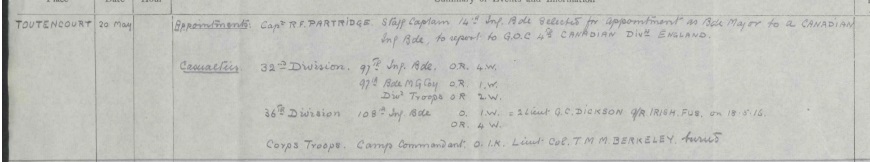 TOUTENCOURT 20 May Appointments: Capt R.F. PARTRIDGE. Staff Captain 14th Inf. Bde selected for appointment as Bde Major to a CANADIAN
Inf. Bde, to report to G.O.C 4th CANADIAN Divn ENGLAND.
Casualties 32nd Division. 97th Inf. Bde. O.R. 4.W.
97th Bde M.G. Coy O.R. 1.W.
Divl Troops O.R 2.W.
36th Division 108th Inf. Bde O. 1.W. = 2 Lieut G.C. DICKSON 9/R. IRISH. FUS. on 18.5.16.
OR. 4 W.
Corps Troops. Camp Commandant. O. 1.K. Lieut. Col. T.M.M. BERKELEY.